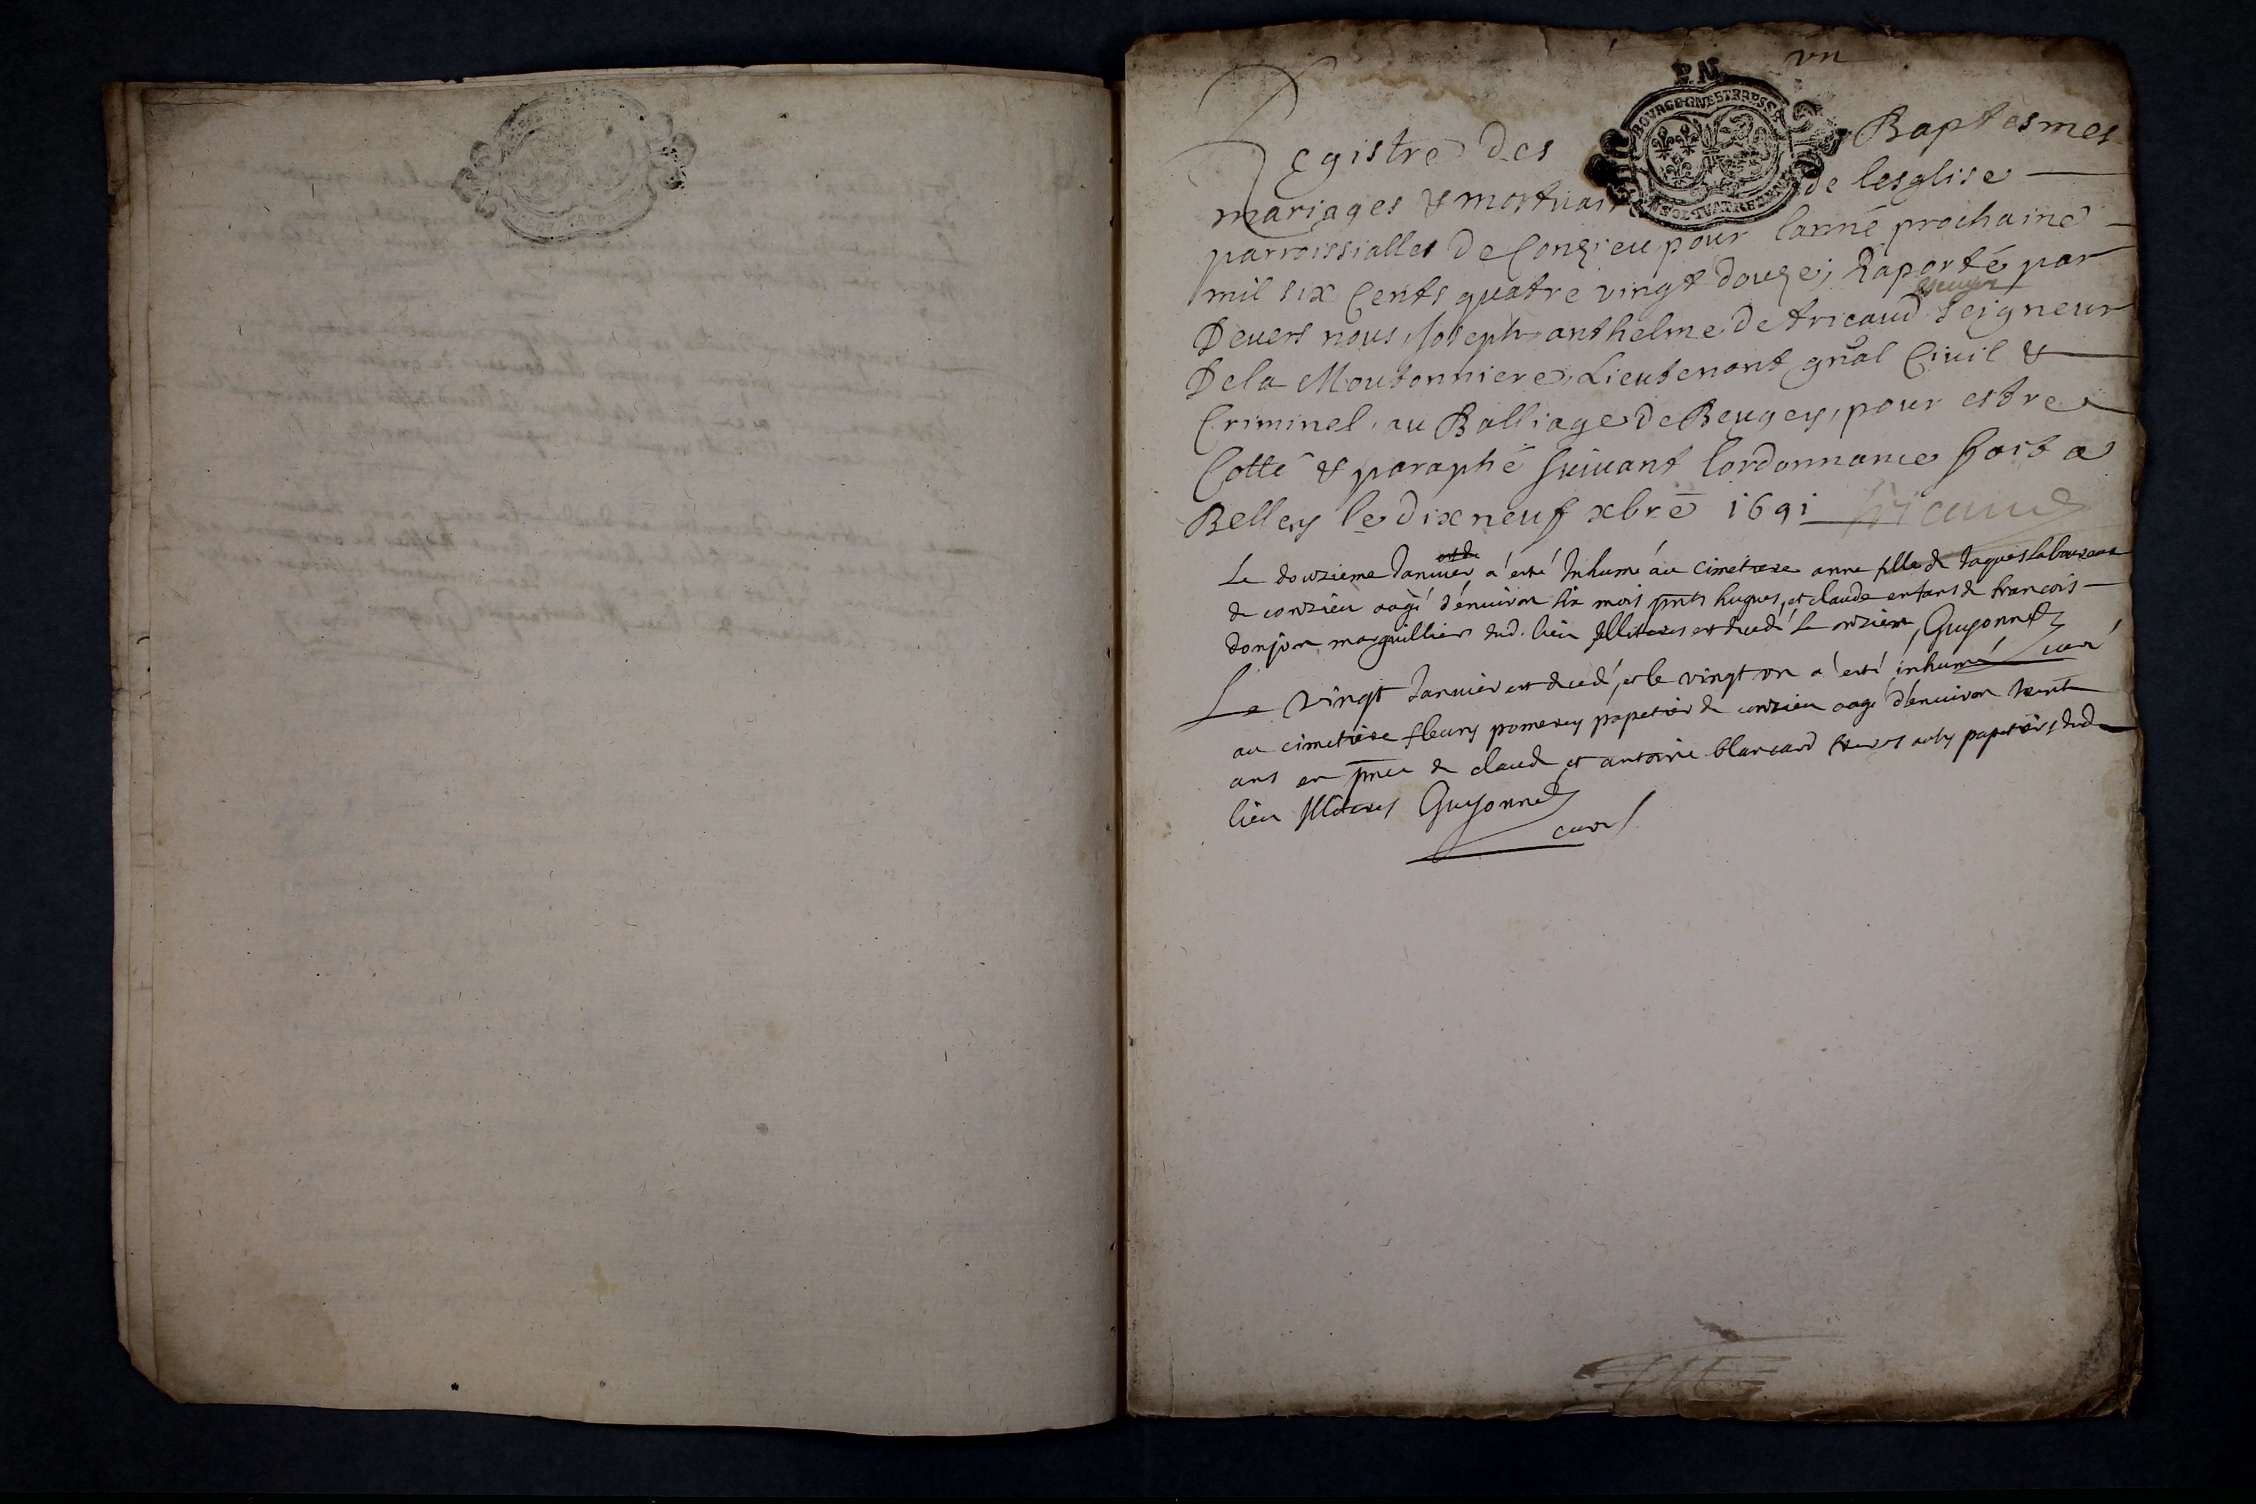 vn
P.N.
BOVRGOGNE ET BRESSE
Registre des Baptesmes
mariages & mortuair de lesglise
parroissialles de Conzieu pour lanné prochaine
mil six Cents quatre vingt douze; Raporté par
Deuers nous Joseph anthelme de tricaud escuyer Seigneur
De la Moutonniere, Lieutenant gnal Ciuil &
Criminel au Balliage de Beugey, pour estre
Cotté & paraphé suiuant lordonnance fait a
Belley le dix neuf xbre 1691 tricaud
Le douzieme Januier a esté Inhumé au cimetiere anne fille de Jaques
de conzieu aagé d'enuiron six mois pnts hugues, et claude enfans de francois
donjon marguillier dud. lieu Illiteres est decedé Le onzieme, Guyonnet
curé
Le vingt Januier est decedé, et le vingt vn a esté inhumé
au cimetiere fleury pomerey papetier de conzieu aagé d'enuiron trente
ans en pnce de claude et antoine blancard freres aussy papetiers dud
lieu Illiteres Guyonnet
curé